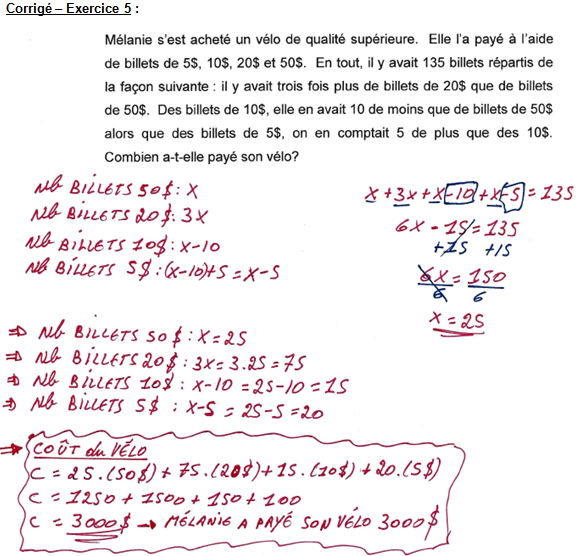 Corrigé – Exercice 5 :
Mélanie s'est acheté un vélo de qualité supérieure. Elle l'a payé à l'aide
de billets de 5$, 10$, 20$ et 50$. En tout, il y avait 135 billets répartis de
la façon suivante : il y avait trois fois plus de billets de 20$ que de billets
de 50$. Des billets de 10$, elle en avait 10 de moins que de billets de 50$
alors que des billets de 5$, on en comptait 5 de plus que des 10$.
Combien a-t-elle payé son vélo?
Nb BILLETS 50$: X
Nb BILLETS 20$: 3X
Nb BILLETS 10$: X-10
Nb BILLETS 5$: (X-10)+5 = X-5
X + 3X + X-10 + X-5 = 135
6X - 15 = 135
+15 +15
6X = 150
6 6
X = 25
⇒ Nb BILLETS 50$: X = 25
⇒ Nb BILLETS 20$: 3X = 3.25 = 75
⇒ Nb BILLETS 10$: X-10 = 25-10 = 15
⇒ Nb BILLETS 5$ : X-5 = 25-5 = 20
⇒ COÛT du VÉLO
C = 25.(50$) + 75.(20$) + 15.(10$) + 20.(5$)
C = 1250 + 1500 + 150 + 100
C = 3000$ → MÉLANIE A PAYÉ SON VÉLO 3000$